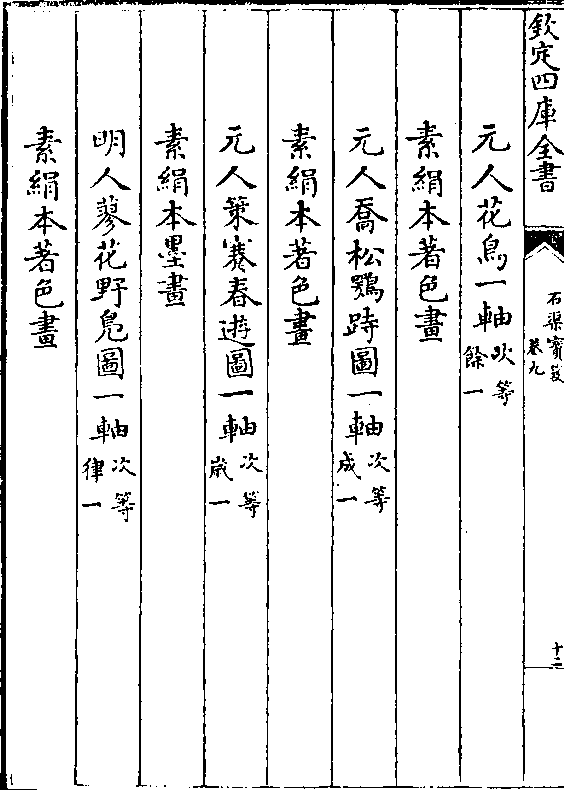 欽定四庫全書
石渠寶笈
卷九
十二
元人花鳥一軸次等餘一
素絹本著色畫
元人喬松鶚跱圖一軸次等成一
素絹本著色畫
元人策蹇春遊圖一軸次等歲一
素絹本墨畫
明人蓼花野鳧圖一軸次等律一
素絹本著色畫